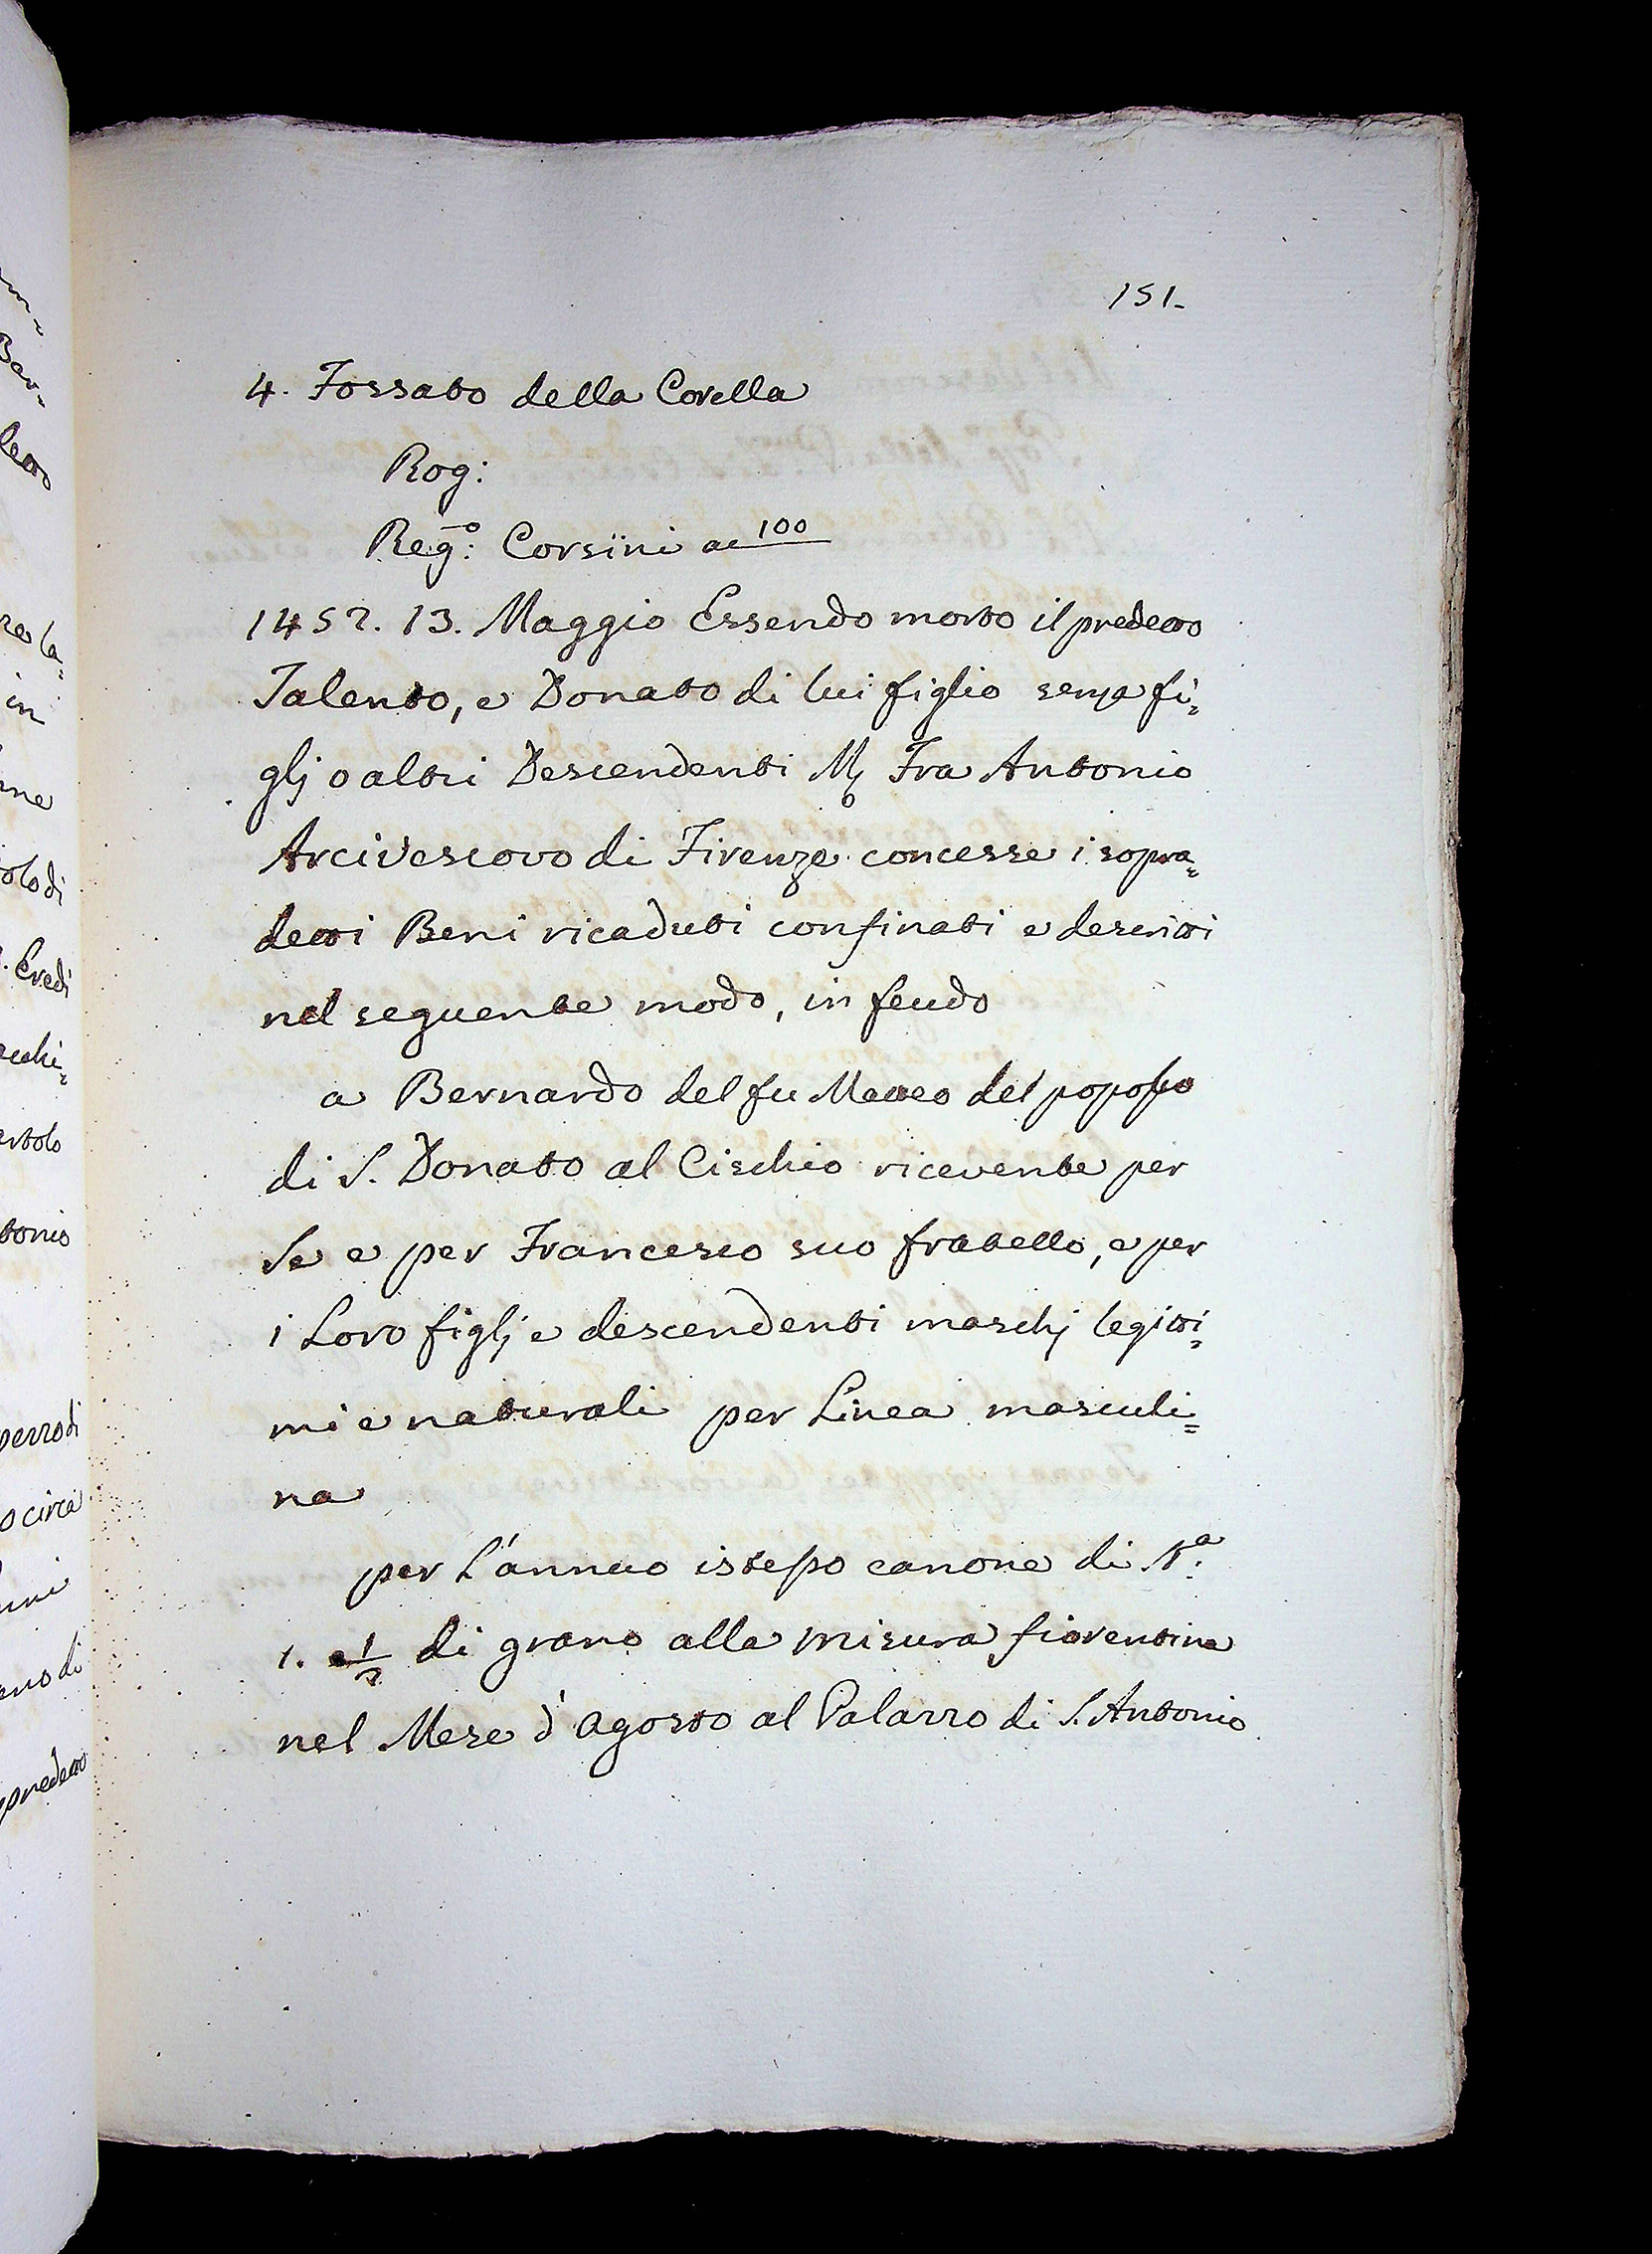 151.
4. Fossato della Corella
Rog:
Reg:º Corsini ac 100
1452. 13. Maggio Essendo morto il predetto
Talento, e Donato di lui figlio senza fi=
glj o altri Descendenti Mr Fra Antonio
Arcivescovo di Firenze concesse i sopra=
detti Beni ricaduti confinati e descritti
nel seguente modo, in feudo
a Bernardo del fu Matteo del popolo
di S. Donato al Cischio ricevente per
Se e per Francesco suo fratello, e per
i Loro figlj e descendenti maschj legitti=
mi e naturali per Linea masculi=
na
per L'annuo istesso canone di Sª.
1. e 1/2 di grano alla misura fiorentina
nel Mese d'Agosto al Palazzo di S. Antonio